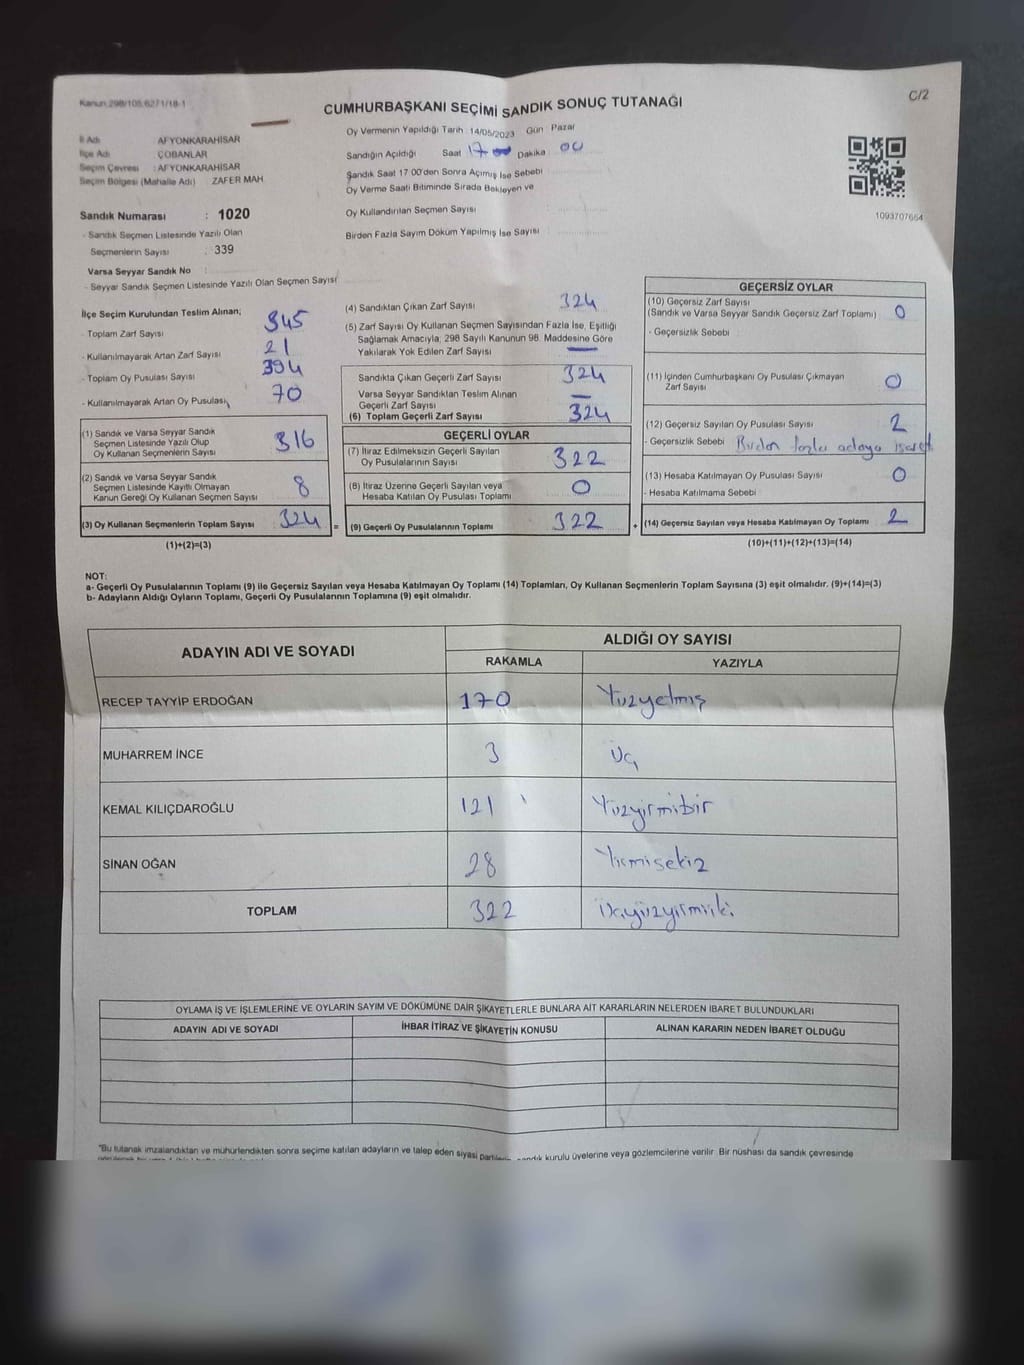 Kanun 298/105,6271/18-1
CUMHURBAŞKANI SEÇİMİ SANDIK SONUÇ TUTANAĞI
C/2
İl Adı AFYONKARAHİSAR
İlçe Adı ÇOBANLAR
Seçim Çevresi : AFYONKARAHİSAR
Seçim Bölgesi (Mahalle Adı) ZAFER MAH
Sandık Numarası : 1020
- Sandık Seçmen Listesinde Yazılı Olan
Seçmenlerin Sayısı : 339
Varsa Seyyar Sandık No :
- Seyyar Sandık Seçmen Listesinde Yazılı Olan Seçmen Sayısı
Oy Vermenin Yapıldığı Tarih 14/05/2023 Gün Pazar
Sandığın Açıldığı Saat 17 Dakika 00
Sandık Saat 17:00'den Sonra Açımış İse Sebebi
Oy Verme Saati Bitiminde Sırada Bekleyen ve
Oy Kullandırılan Seçmen Sayısı :
Birden Fazla Sayım Döküm Yapılmış İse Sayısı :
1093707664
İlçe Seçim Kurulundan Teslim Alınan;
- Toplam Zarf Sayısı 345
- Kullanılmayarak Artan Zarf Sayısı 21
- Toplam Oy Pusulası Sayısı 394
- Kullanılmayarak Artan Oy Pusulası 70
(1) Sandık ve Varsa Seyyar Sandık
Seçmen Listesinde Yazılı Olup
Oy Kullanan Seçmenlerin Sayısı 316
(2) Sandık ve Varsa Seyyar Sandık
Seçmen Listesinde Kayıtlı Olmayan
Kanun Gereği Oy Kullanan Seçmen Sayısı 8
(3) Oy Kullanan Seçmenlerin Toplam Sayısı 324 =
(1)+(2)=(3)
(4) Sandıktan Çıkan Zarf Sayısı 324
(5) Zarf Sayısı Oy Kullanan Seçmen Sayısından Fazla İse, Eşitliği
Sağlamak Amacıyla, 298 Sayılı Kanunun 98. Maddesine Göre
Yakılarak Yok Edilen Zarf Sayısı —
Sandıkta Çıkan Geçerli Zarf Sayısı 324
Varsa Seyyar Sandıktan Teslim Alınan
Geçerli Zarf Sayısı —
(6) Toplam Geçerli Zarf Sayısı 324
GEÇERLİ OYLAR
(7) İtiraz Edilmeksizin Geçerli Sayılan
Oy Pusulalarının Sayısı 322
(8) İtiraz Üzerine Geçerli Sayılan veya
Hesaba Katılan Oy Pusulası Toplamı 0
(9) Geçerli Oy Pusulalarının Toplamı 322 +
GEÇERSİZ OYLAR
(10) Geçersiz Zarf Sayısı
(Sandık ve Varsa Seyyar Sandık Geçersiz Zarf Toplamı) 0
- Geçersizlik Sebebi :
(11) İçinden Cumhurbaşkanı Oy Pusulası Çıkmayan
Zarf Sayısı 0
(12) Geçersiz Sayılan Oy Pusulası Sayısı 2
- Geçersizlik Sebebi Birden fazla adaya işaret
(13) Hesaba Katılmayan Oy Pusulası Sayısı 0
- Hesaba Katılmama Sebebi
(14) Geçersiz Sayılan veya Hesaba Katılmayan Oy Toplamı 2
(10)+(11)+(12)+(13)=(14)
NOT:
a- Geçerli Oy Pusulalarının Toplamı (9) ile Geçersiz Sayılan veya Hesaba Katılmayan Oy Toplamı (14) Toplamları, Oy Kullanan Seçmenlerin Toplam Sayısına (3) eşit olmalıdır. (9)+(14)=(3)
b- Adayların Aldığı Oyların Toplamı, Geçerli Oy Pusulalarının Toplamına (9) eşit olmalıdır.
ADAYIN ADI VE SOYADI ALDIĞI OY SAYISI
RAKAMLA YAZIYLA
RECEP TAYYİP ERDOĞAN 170 Yüzyetmiş
MUHARREM İNCE 3 Üç
KEMAL KILIÇDAROĞLU 121 Yüzyirmibir
SİNAN OĞAN 28 Yirmisekiz
TOPLAM 322 İkiyüzyirmiiki
OYLAMA İŞ VE İŞLEMLERİNE VE OYLARIN SAYIM VE DÖKÜMÜNE DAİR ŞİKAYETLERLE BUNLARA AİT KARARLARIN NELERDEN İBARET BULUNDUKLARI
ADAYIN ADI VE SOYADI İHBAR İTİRAZ VE ŞİKAYETİN KONUSU ALINAN KARARIN NEDEN İBARET OLDUĞU
"Bu tutanak imzalandıktan ve mühürlendikten sonra seçime katılan adayların ve talep eden siyasi sandık kurulu üyelerine veya gözlemcilerine verilir. Bir nüshası da sandık çevresinde